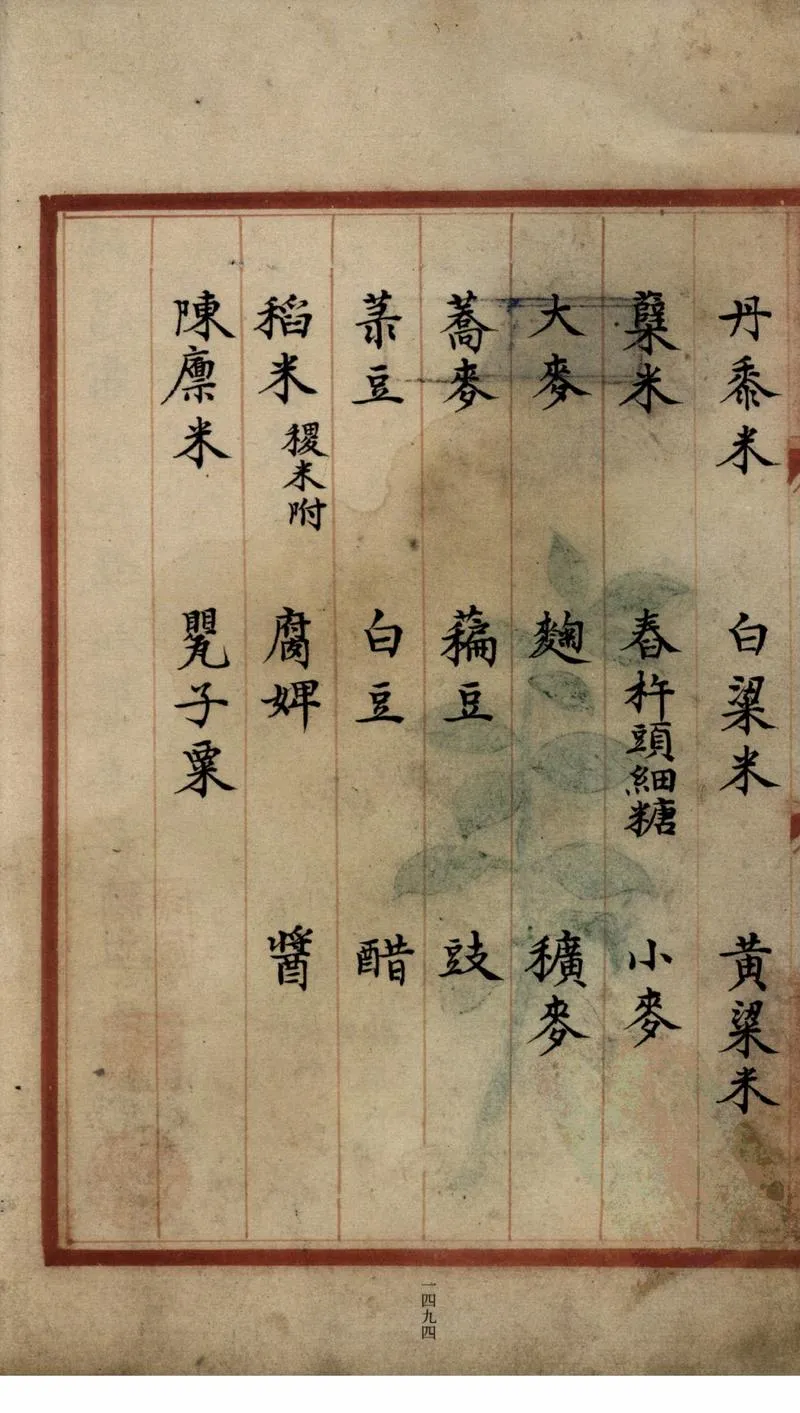 丹黍米 白粱米 黃粱米
糵米 舂杵頭細糠 小麥
大麥 麴 穬麥
蕎麥 藊豆 豉
菉豆 白豆 醋
稻米 稷米附 腐婢 醬
陳廪米 甖子粟
一四九四